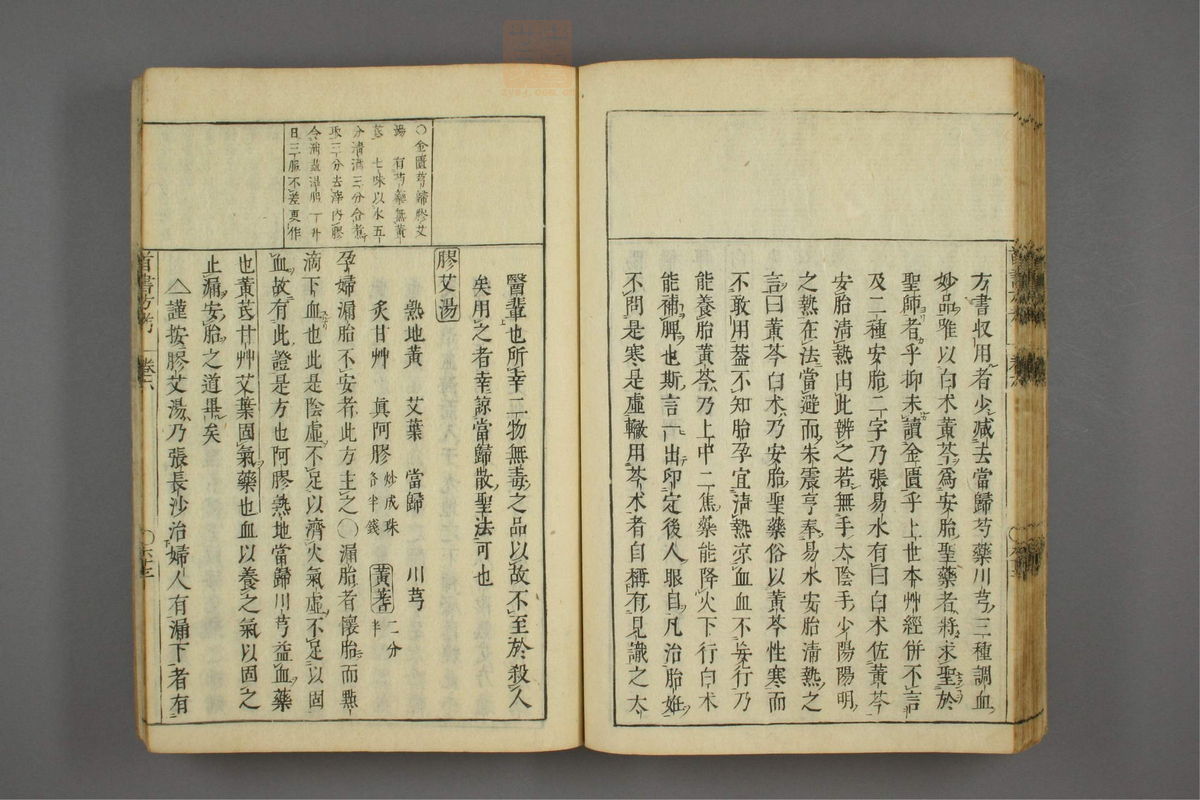 方書収用者少減去當歸芍藥川芎三種調血
妙品唯以白术黃芩爲安胎聖藥者將求聖於
聖師者乎抑未讀金匱乎上世本艸經併不言
及二種安胎二字乃張易水有曰白术佐黃芩
安胎清熱由此辨之若無手太陰手少陽陽明
之熱在法當避而朱震亨奉易水安胎清熱之
言曰黃芩白术乃安胎聖藥俗以黃芩性寒而
不敢用葢不知胎孕宜淸熱凉血血不妄行乃
能養胎黃芩乃上中二焦藥能降火下行白术
能補脾也斯言一出印定後人眼目凡治胎姙
不問是寒是虛輙用芩术者自稱有見識之大
醫輩也所幸二物無毒之品以故不至於殺人
矣用之者幸諒當歸散聖法可也
膠艾湯
熟地黃 艾葉 當歸 川芎
炙甘艸 眞阿膠 炒成珠各半錢 黃芪 二分半
孕婦漏胎不安者此方主之○漏胎者懷胎而點
滴下血也此是陰虛不足以濟火氣虛不足以固
血故有此證是方也阿膠熟地當歸川芎益血藥
也黃芪甘艸艾葉固氣藥也血以養之氣以固之
止漏安胎之道畢矣
△謹按膠艾湯乃張長沙治婦人有漏下者有
○金匱芎歸膠艾
湯 有芍藥無黃
芪 七味以水五
分淸酒三分合煮
取三分去滓內膠
令消盡温服一升
日三服不差更作